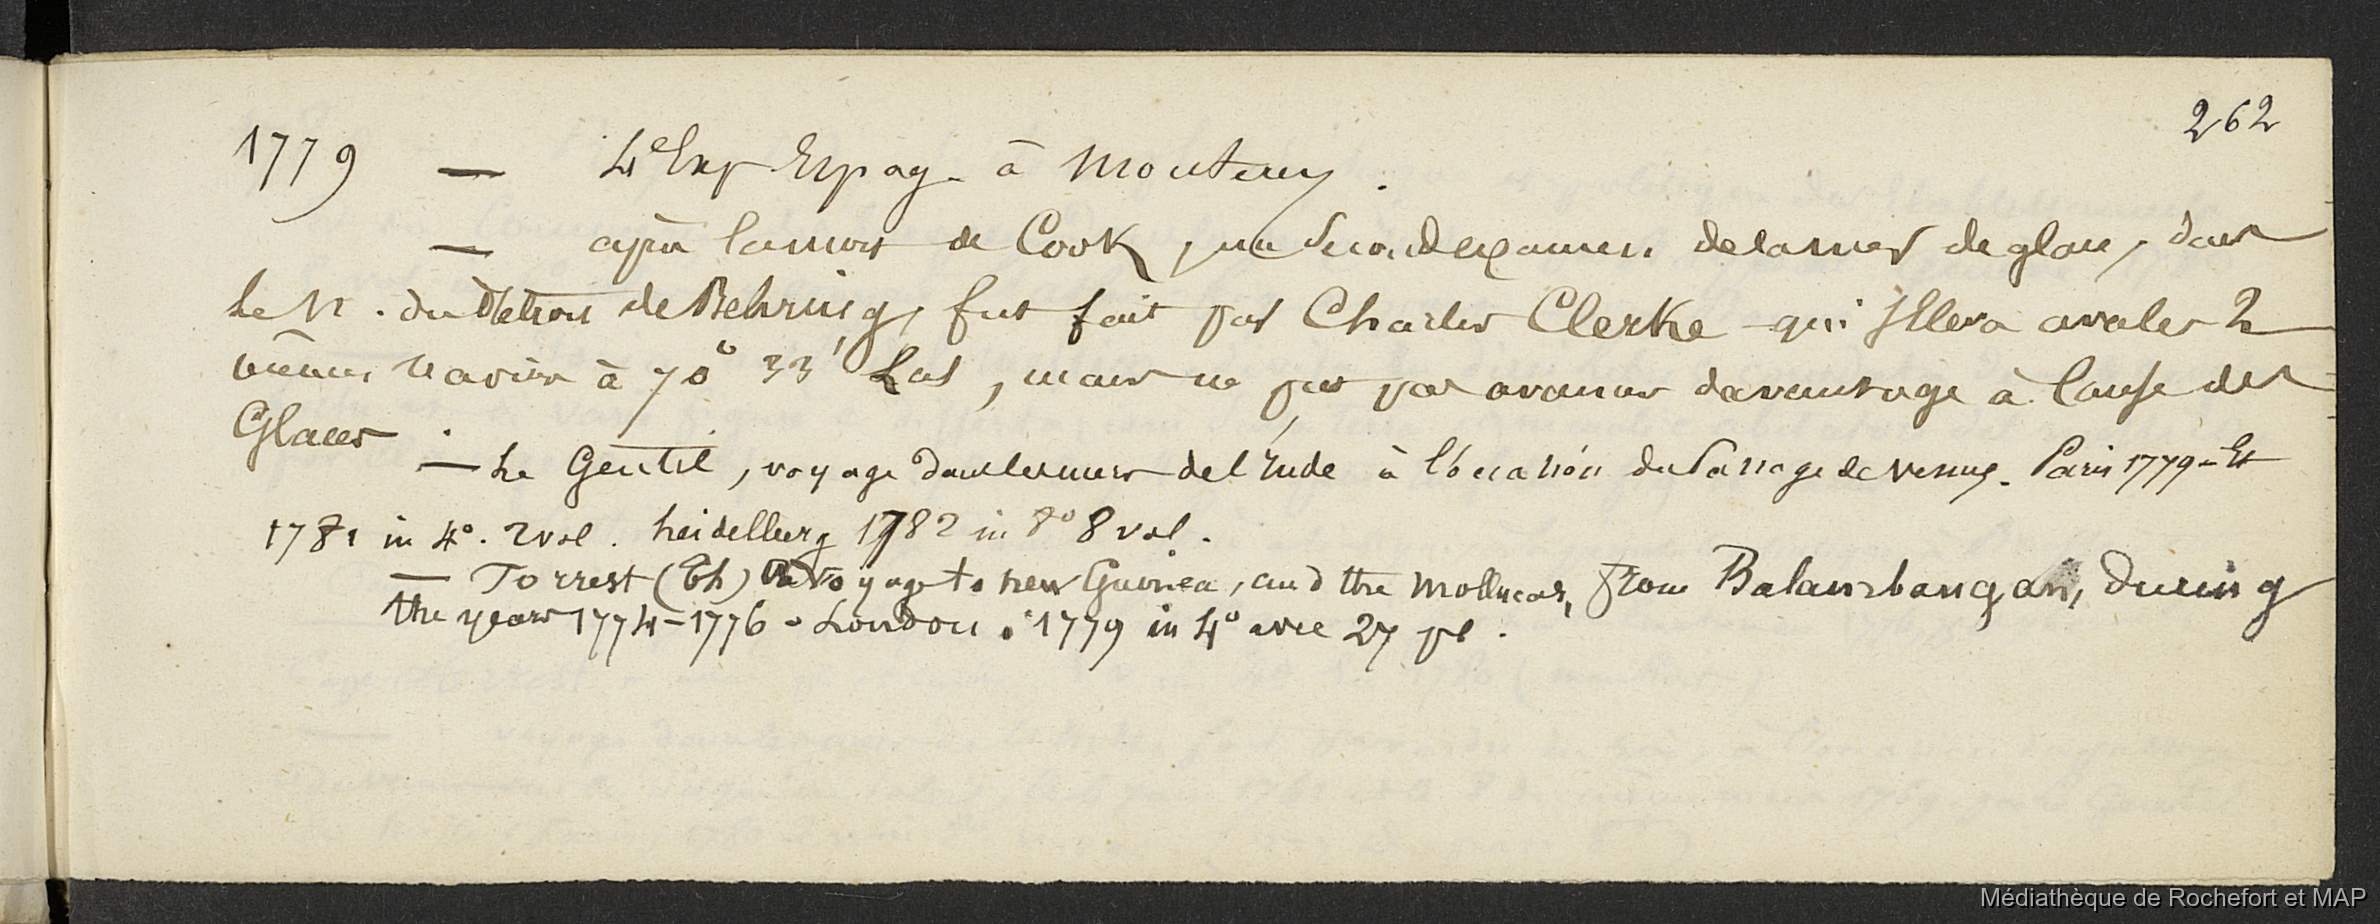 262
1779 — 4e Exp Espag. à Monterey.
— après la mort de Cook, un second examen de la mer de glace, dans
le N. du Détroit de Behring, fut fait par Charles Clerke qui s'éleva avec les 2
mêmes navires à 70° 33' Lat, mais ne put pas avancer davantage à cause des
Glaces
— Le Gentil, voyage dans les mers de l'Inde à l'occasion du Passage de Venus. Paris 1779 - Et
1781 in 4°. 2 vol. heidelberg 1782 in 8° 8 vol.
— Forrest (Th) A voyage to new Guinea, and the Mollucas, from Balambangan, during
the years 1774-1776 - London. 1779 in 4° avec 27 pl.
Médiathèque de Rochefort et MAP